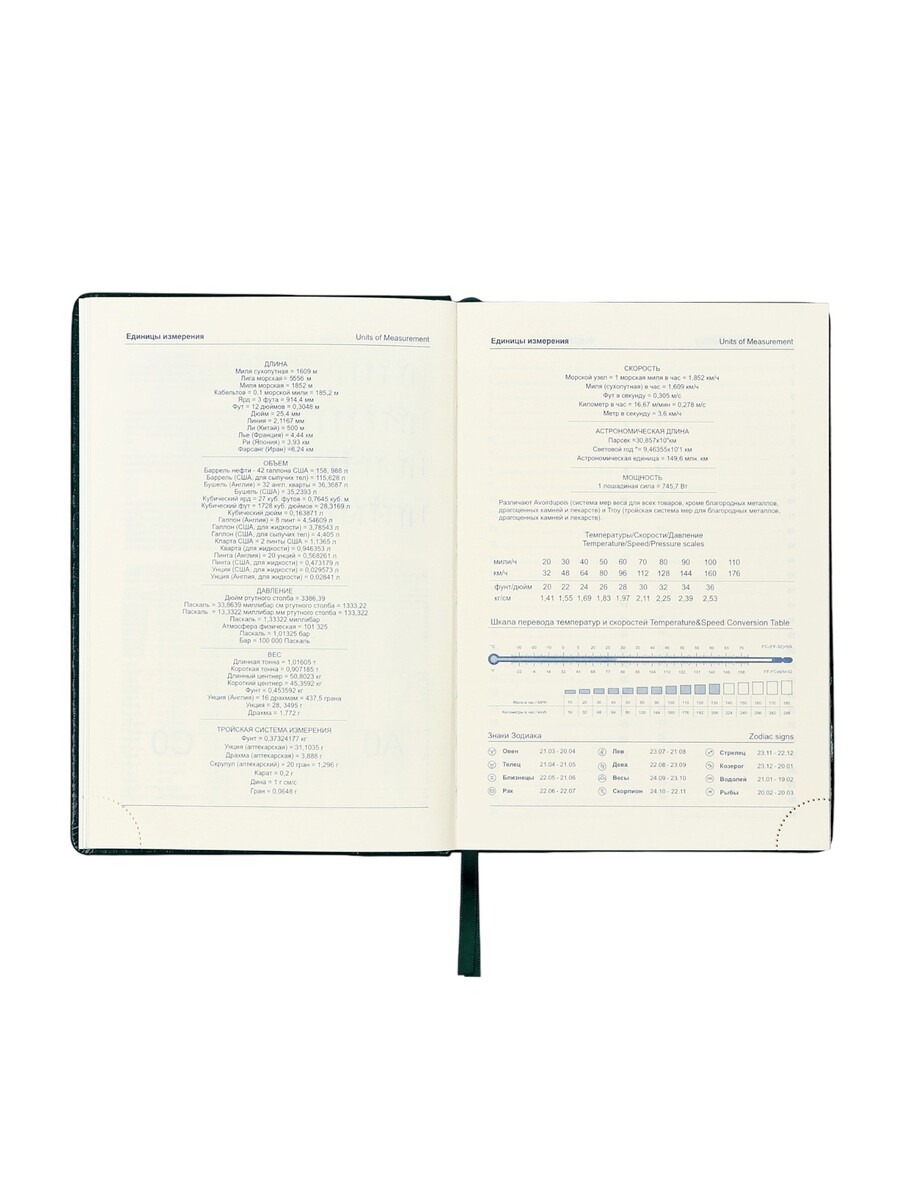 Единицы измерения Units of Measurement
ДЛИНА
Миля сухопутная = 1609 м
Лига морская = 5556 м
Миля морская = 1852 м
Кабельтов = 0.1 морской мили = 185,2 м
Ярд = 3 фута = 914,4 мм
Фут = 12 дюймов = 0,3048 м
Дюйм = 25,4 мм
Линия = 2,1167 мм
Ли (Китай) = 500 м
Лье (Франция) = 4,44 км
Ри (Япония) = 3,93 км
Фарсанг (Иран) =6,24 км
ОБЪЕМ
Баррель нефти - 42 галлона США = 158, 988 л
Баррель (США, для сыпучих тел) = 115,628 л
Бушель (Англия) = 32 англ. кварты = 36,3687 л
Бушель (США) = 35,2393 л
Кубический ярд = 27 куб. футов = 0,7645 куб. м
Кубический фут = 1728 куб. дюймов = 28,3169 л
Кубический дюйм = 0,163871 л
Галлон (Англия) = 8 пинт = 4,54609 л
Галлон (США, для жидкости) = 3,78543 л
Галлон (США, для сыпучих тел) = 4,405 л
Кларта США = 2 пинты США = 1,1365 л
Кварта (для жидкости) = 0,946353 л
Пинта (Англия) = 20 унций = 0,568261 л
Пинта (США, для жидкости) = 0,473179 л
Унция (США, для жидкости) = 0,029573 л
Унция (Англия, для жидкости) = 0,02841 л
ДАВЛЕНИЕ
Дюйм ртутного столба = 3386,39
Паскаль = 33,8639 миллибар см ртутного столба = 1333,22
Паскаль = 13,3322 миллибар мм ртутного столба = 133,322
Паскаль = 1,33322 миллибар
Атмосфера физическая = 101 325
Паскаль = 1,01325 бар
Бар = 100 000 Паскаль
ВЕС
Длинная тонна = 1,01605 т
Короткая тонна = 0,907185 т
Длинный центнер = 50,8023 кг
Короткий центнер = 45,3592 кг
Фунт = 0,453592 кг
Унция (Англия) = 16 драхмам = 437,5 грана
Унция = 28, 3495 г
Драхма = 1,772 г
ТРОЙСКАЯ СИСТЕМА ИЗМЕРЕНИЯ
Фунт = 0,37324177 кг
Унция (аптекарская) = 31,1035 г
Драхма (аптекарская) = 3,888 г
Скрупул (аптекарский) = 20 гран = 1,296 г
Карат = 0,2 г
Дина = 1 г см/с
Гран = 0,0648 г
Единицы измерения Units of Measurement
СКОРОСТЬ
Морской узел = 1 морская миля в час = 1,852 км/ч
Миля (сухопутная) в час = 1,609 км/ч
Фут в секунду = 0,305 м/с
Километр в час = 16,67 м/мин = 0,278 м/с
Метр в секунду = 3,6 км/ч
АСТРОНОМИЧЕСКАЯ ДЛИНА
Парсек =30,857x10"км
Световой год "= 9,46355x10'1 км
Астрономическая единица = 149,6 млн. км
МОЩНОСТЬ
1 лошадиная сила = 745,7 Вт
Различают Avoirdupois (система мер веса для всех товаров, кроме благородных металлов,
драгоценных камней и лекарств) и Troy (тройская система мер для благородных металлов,
драгоценных камней и лекарств).
Температуры/Скорости/Давление
Temperature/Speed/Pressure scales
мили/ч 20 30 40 50 60 70 80 90 100 110
км/ч 32 48 64 80 96 112 128 144 160 176
фунт/дюйм 20 22 24 26 28 30 32 34 36
кг/см 1,41 1,55 1,69 1,83 1,97 2,11 2,25 2,39 2,53
Шкала перевода температур и скоростей Temperature&Speed Conversion Table
Знаки Зодиака Zodiac signs
Овен 21.03 - 20.04 Лев 23.07 - 21.08 Стрелец 23.11 - 22.12
Телец 21.04 - 21.05 Дева 22.08 - 23.09 Козерог 23.12 - 20.01
Близнецы 22.05 - 21.06 Весы 24.09 - 23.10 Водолей 21.01 - 19.02
Рак 22.06 - 22.07 Скорпион 24.10 - 22.11 Рыбы 20.02 - 20.03